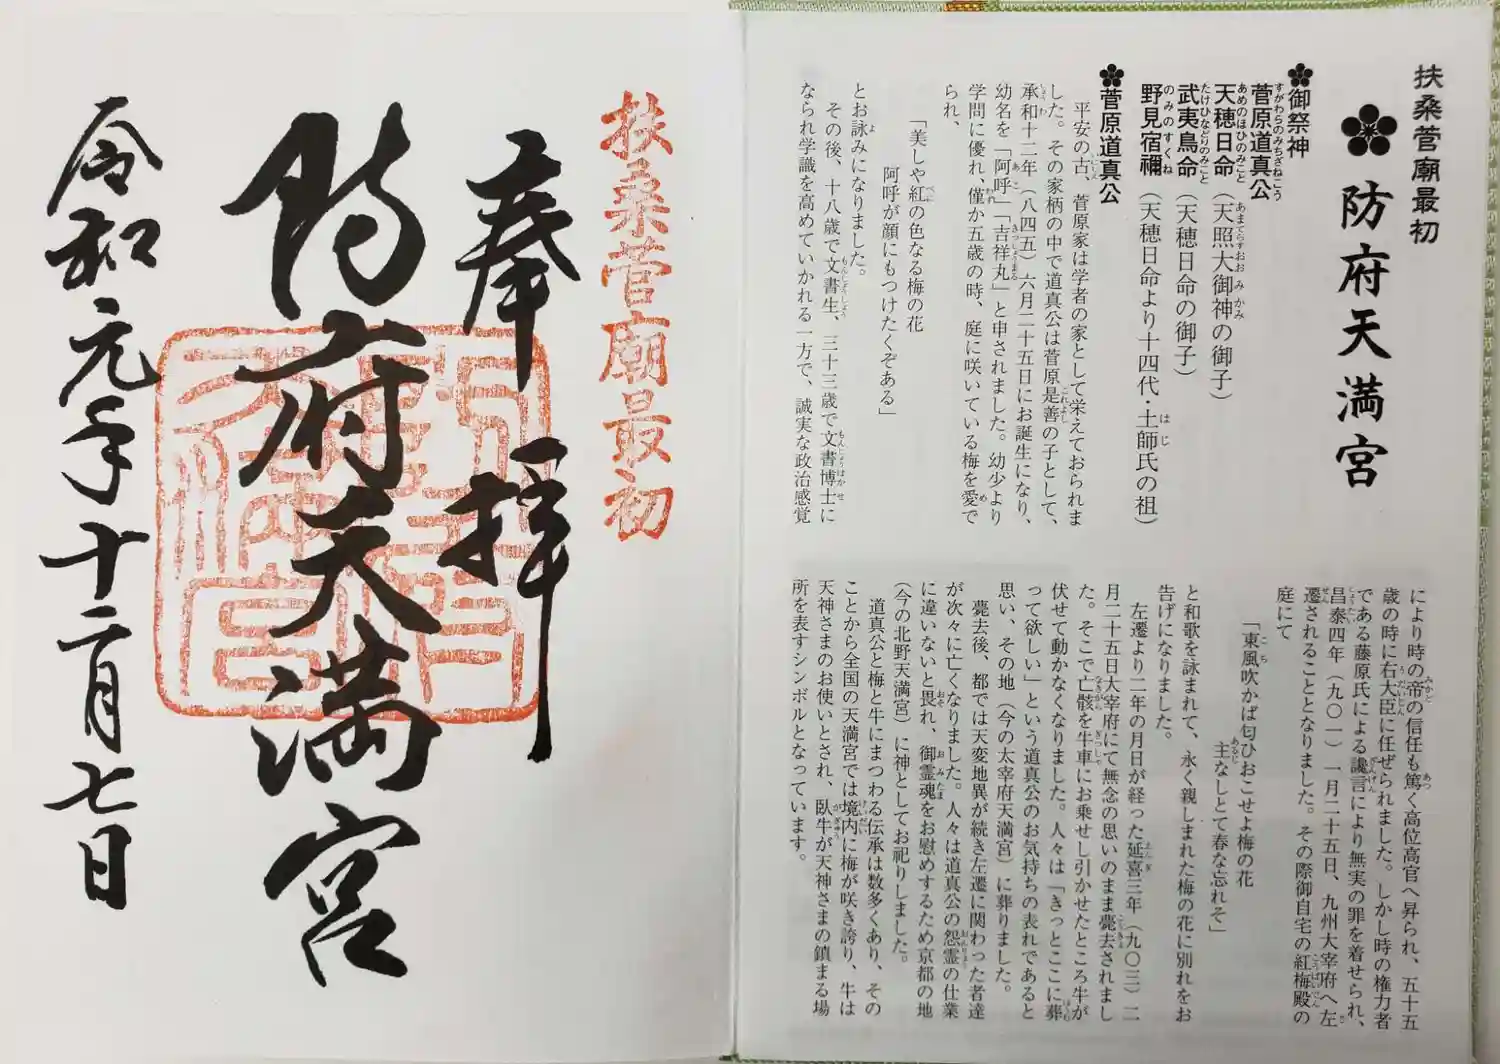 扶桑菅廟最初
防府天満宮
御祭神
すがわらのみちざねこう
菅原道真公
あめのほひのみこと　あまてらすおおみかみ
天穂日命（天照大御神の御子）
たけひなどりのみこと
武夷鳥命（天穂日命の御子）
のみのすくね　はじ
野見宿禰（天穂日命より十四代・土師氏の祖）
菅原道真公
平安の古、菅原家は学者の家として栄えておられま
した。その家柄の中で道真公は菅原是善の子として、
承和十二年（八四五）六月二十五日にお誕生になり、
幼名を「阿呼」「吉祥丸」と申されました。幼少より
学問に優れ、僅か五歳の時、庭に咲いている梅を愛で
られ、
「美しや紅の色なる梅の花
阿呼が顔にもつけたくぞある」
とお詠みになりました。
その後、十八歳で文書生、三十三歳で文書博士に
なられ学識を高めていかれる一方で、誠実な政治感覚
により時の帝の信任も篤く高位高官へ昇られ、五十五
歳の時に右大臣に任ぜられました。しかし時の権力者
である藤原氏による讒言により無実の罪を着せられ、
昌泰四年（九〇一）一月二十五日、九州大宰府へ左
遷されることとなりました。その際御自宅の紅梅殿の
庭にて
「東風吹かば匂ひおこせよ梅の花
主なしとて春な忘れそ」
と和歌を詠まれて、永く親しまれた梅の花に別れをお
告げになりました。
左遷より二年の月日が経った延喜三年（九〇三）二
月二十五日大宰府にて無念の思いのまま薨去されまし
た。そこで亡骸を牛車にお乗せし引かせたところ牛が
伏せて動かなくなりました。人々は「きっとここに葬
って欲しい」という道真公のお気持ちの表れであると
思い、その地（今の太宰府天満宮）に葬りました。
薨去後、都では天変地異が続き左遷に関わった者達
が次々に亡くなりました。人々は道真公の怨霊の仕業
に違いないと畏れ、御霊魂をお慰めするため京都の地
（今の北野天満宮）に神としてお祀りしました。
道真公と梅と牛にまつわる伝承は数多くあり、その
ことから全国の天満宮では境内に梅が咲き誇り、牛は
天神さまのお使いとされ、臥牛が天神さまの鎮まる場
所を表すシンボルとなっています。
扶桑菅廟最初
奉拝
防府天満宮
令和元年十二月七日